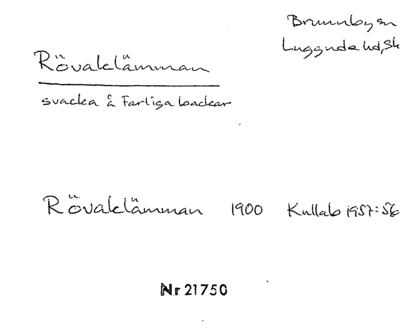 Brunnby sn
Luggude hd, Sk
Rövaklämman
svacka å Farliga backar
Rövaklämman 1900 Kullab 1957:56
Nr 21750